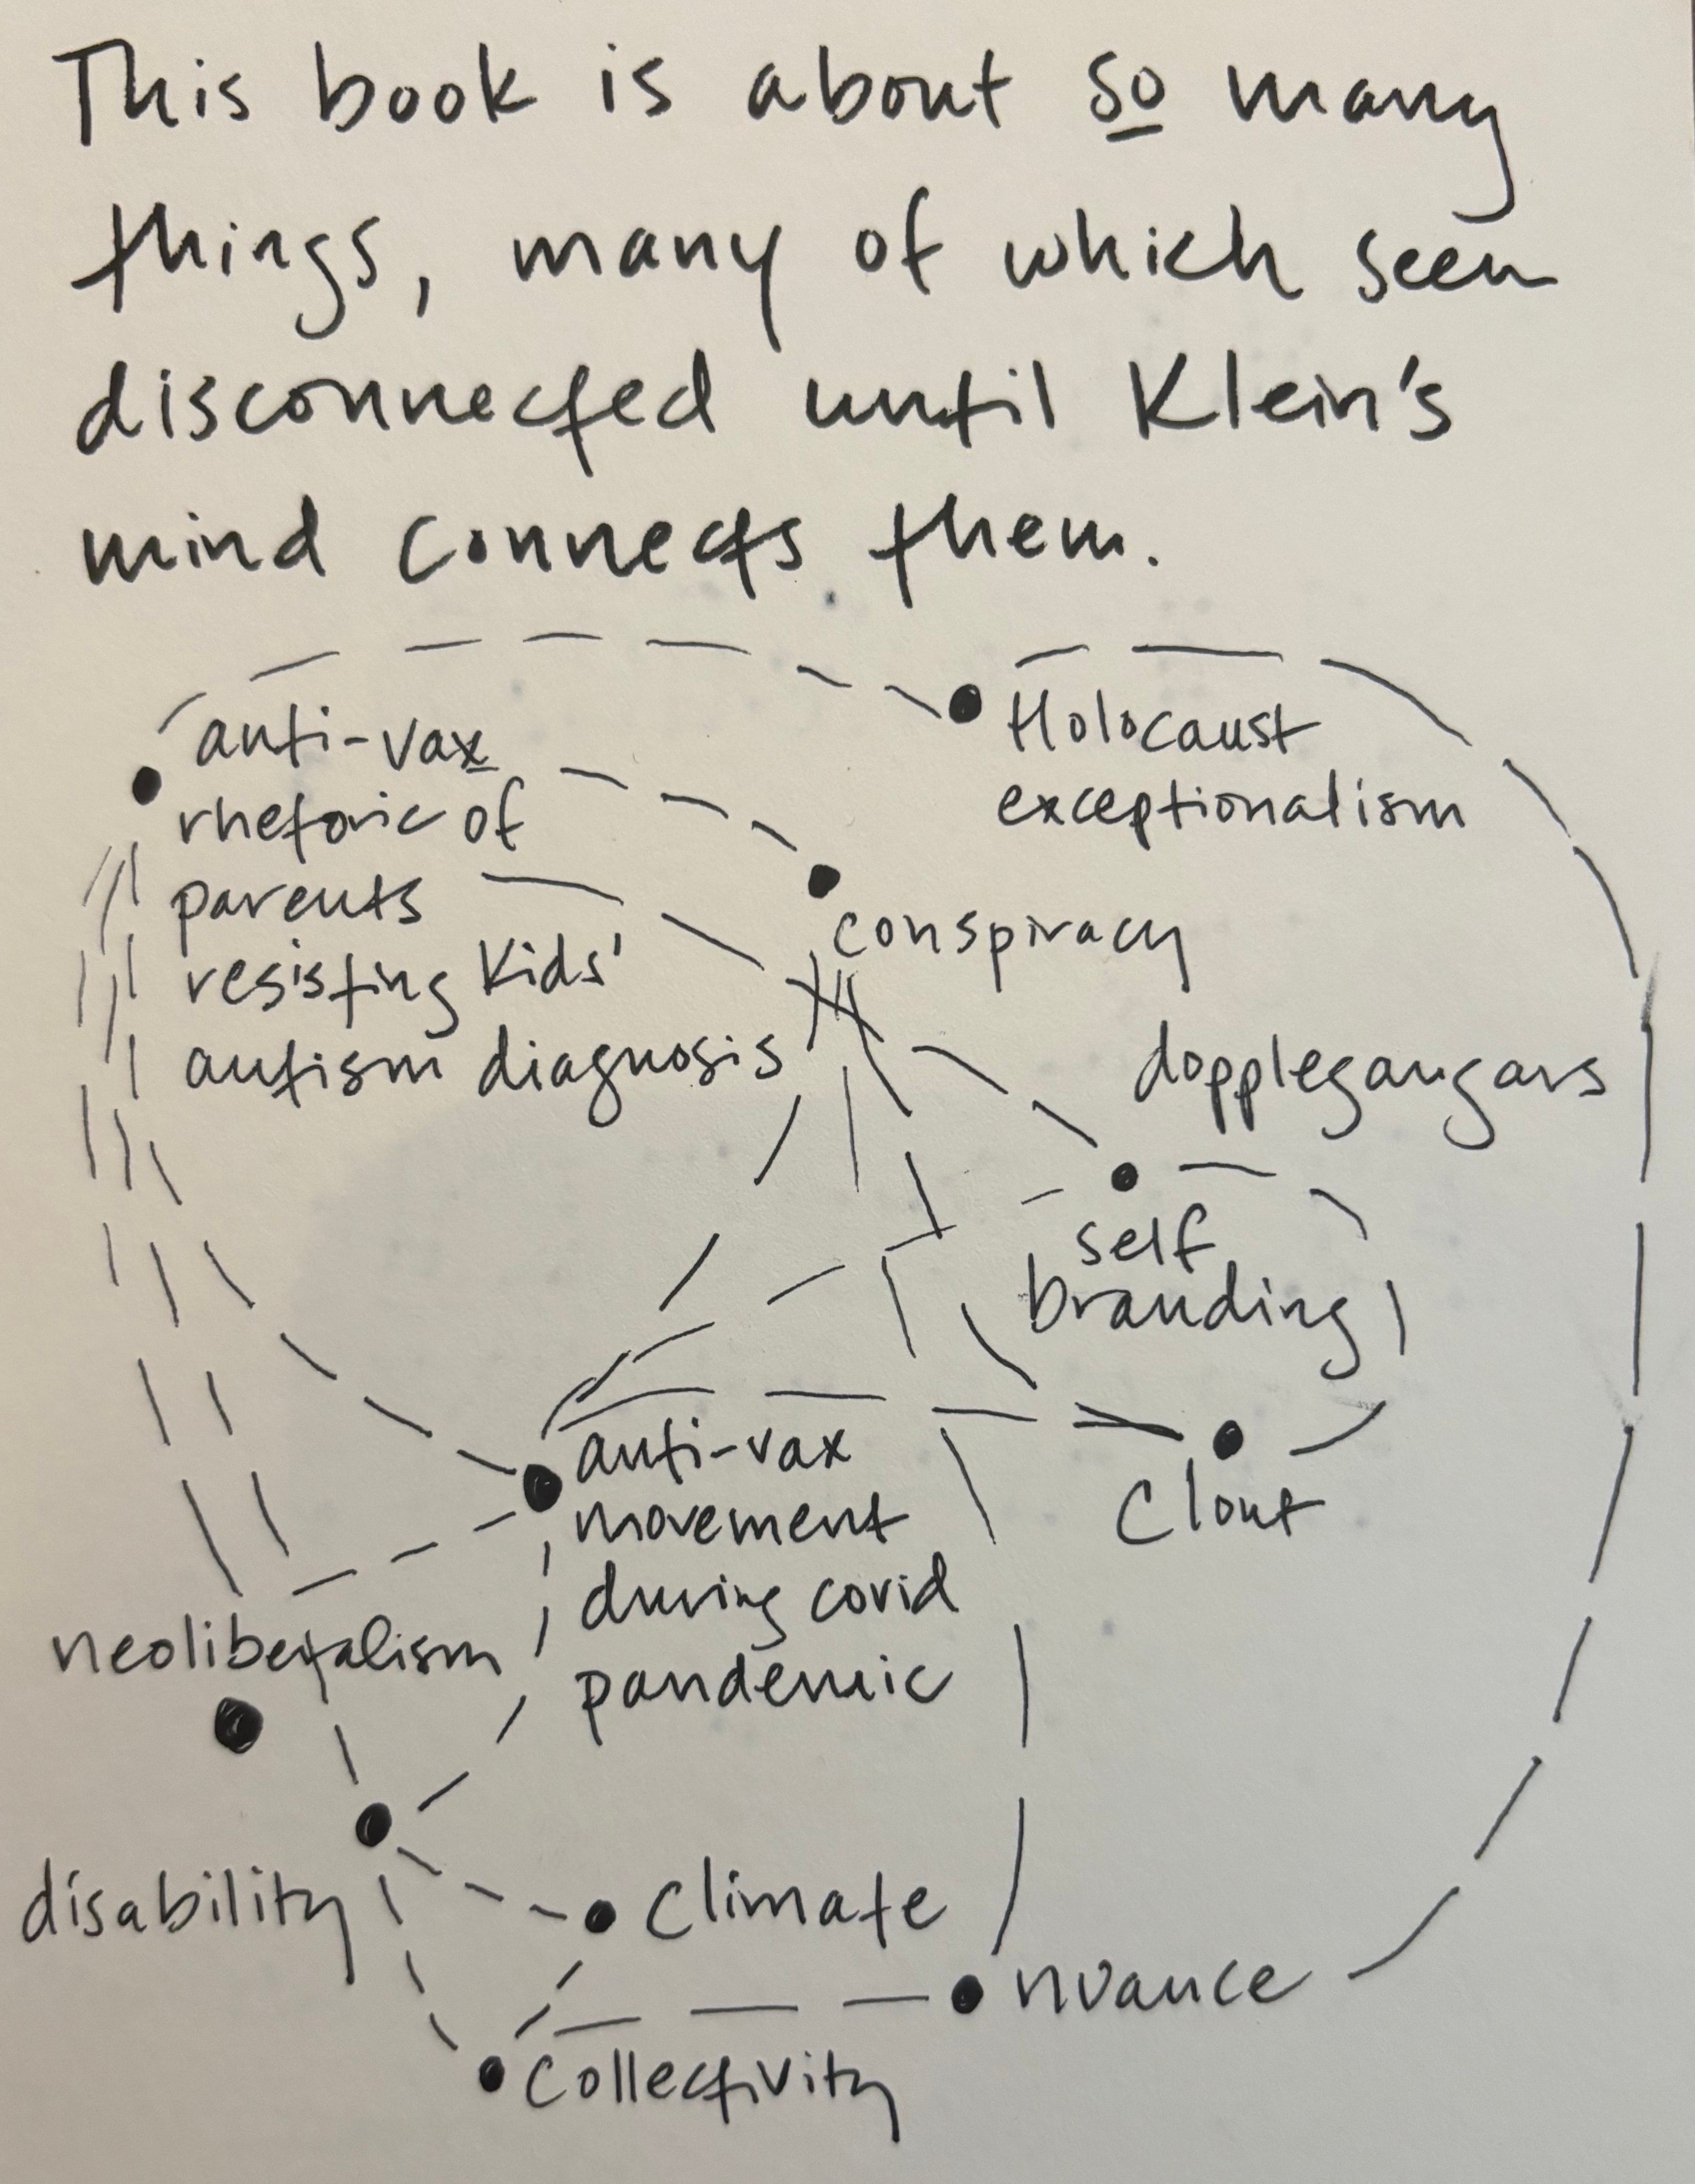 This book is about so many
things, many of which seem
disconnected until Klein's
mind connects them.
anti-vax
rhetoric of
parents
resisting kids'
autism diagnosis
Holocaust
exceptionalism
conspiracy
dopplegangars
self
branding
anti-vax
movement
during covid
pandemic
Clout
neoliberalism
disability
climate
nuance
collectivity